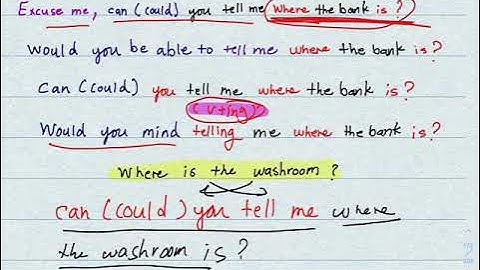 Excuse me, can (could) you tell me where the bank is?
Would you be able to tell me where the bank is?
Can (could) you tell me where the bank is?
(V+ing)
Would you mind telling me where the bank is?
Where is the washroom?
can (could) you tell me where
the washroom is?